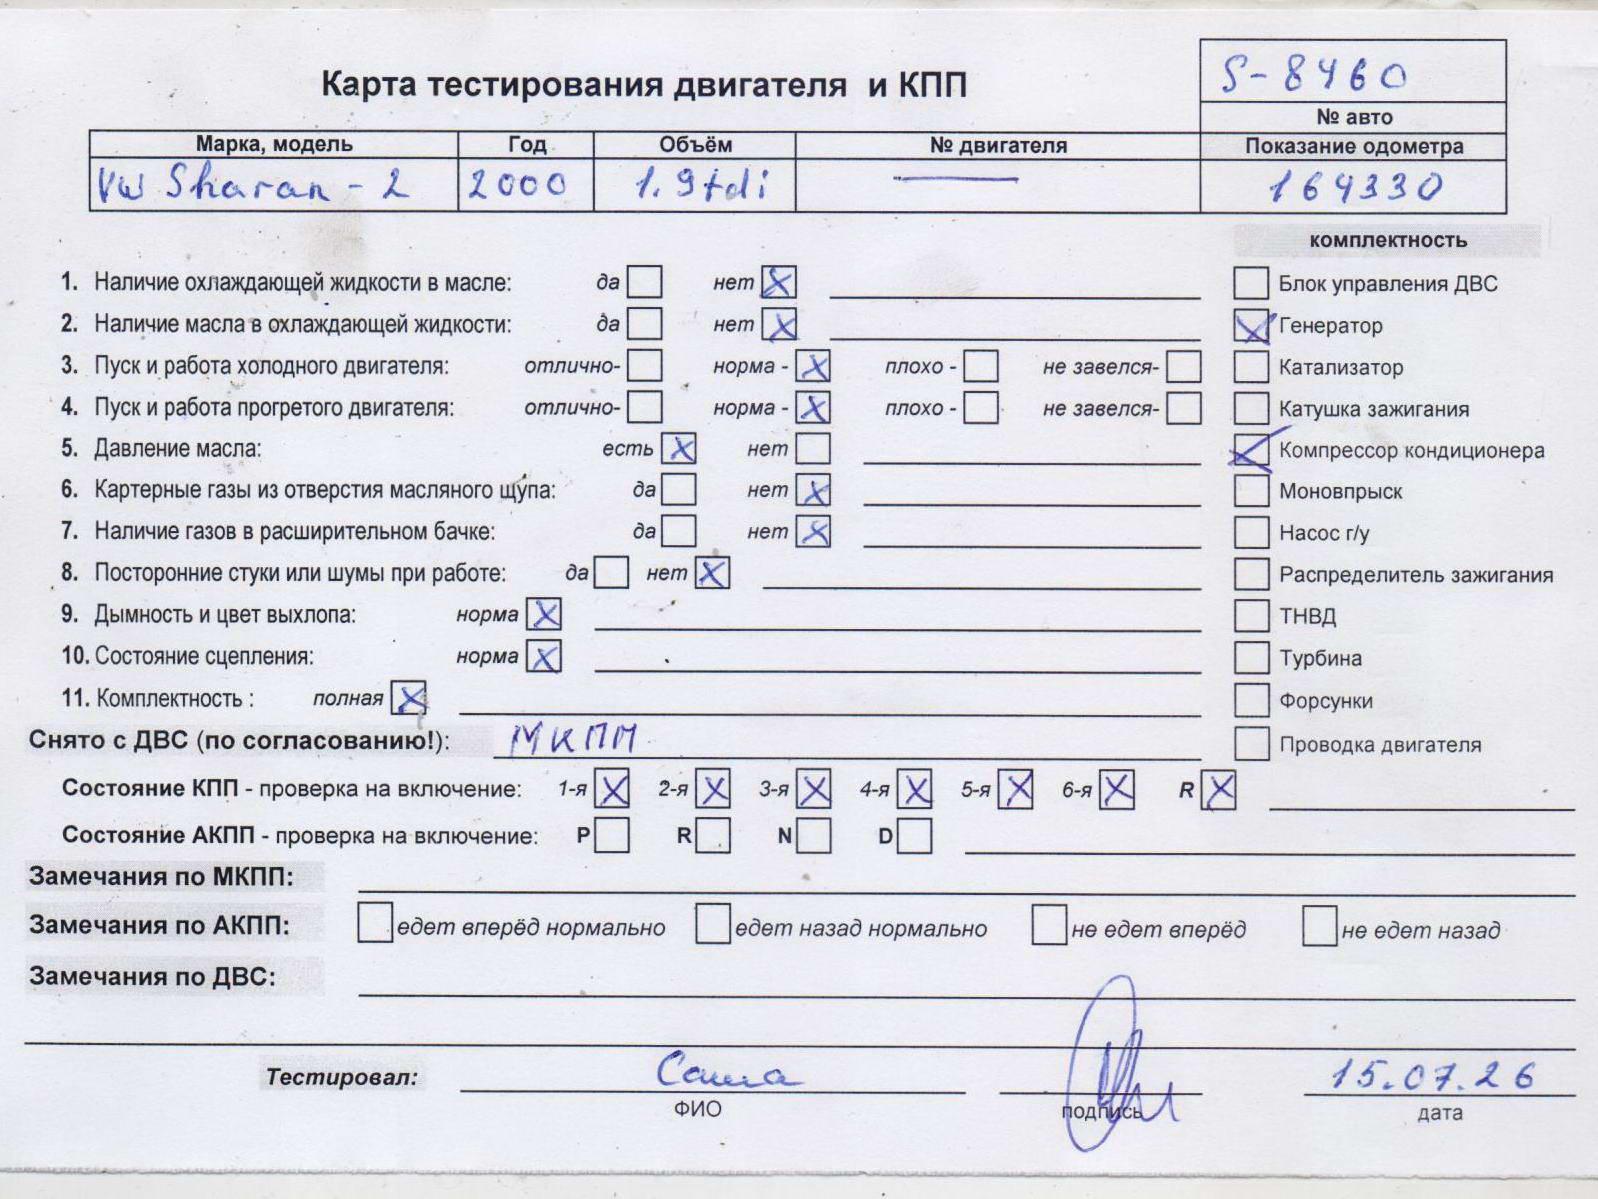 S-8460
Карта тестирования двигателя и КПП
№ авто
Марка, модель Год Объём № двигателя Показание одометра
VW Sharan - 2 2000 1.9tdi 164330
комплектность
1. Наличие охлаждающей жидкости в масле: да нет Блок управления ДВС
2. Наличие масла в охлаждающей жидкости: да нет Генератор
3. Пуск и работа холодного двигателя: отлично- норма - плохо - не завелся- Катализатор
4. Пуск и работа прогретого двигателя: отлично- норма - плохо - не завелся- Катушка зажигания
5. Давление масла: есть нет Компрессор кондиционера
6. Картерные газы из отверстия масляного щупа: да нет Моновпрыск
7. Наличие газов в расширительном бачке: да нет Насос г/у
8. Посторонние стуки или шумы при работе: да нет Распределитель зажигания
9. Дымность и цвет выхлопа: норма ТНВД
10. Состояние сцепления: норма Турбина
11. Комплектность : полная Форсунки
Снято с ДВС (по согласованию!): МКПП Проводка двигателя
Состояние КПП - проверка на включение: 1-я 2-я 3-я 4-я 5-я 6-я R
Состояние АКПП - проверка на включение: P R N D
Замечания по МКПП:
Замечания по АКПП: едет вперёд нормально едет назад нормально не едет вперёд не едет назад
Замечания по ДВС:
Тестировал: Саша 15.07.26
ФИО подпись дата